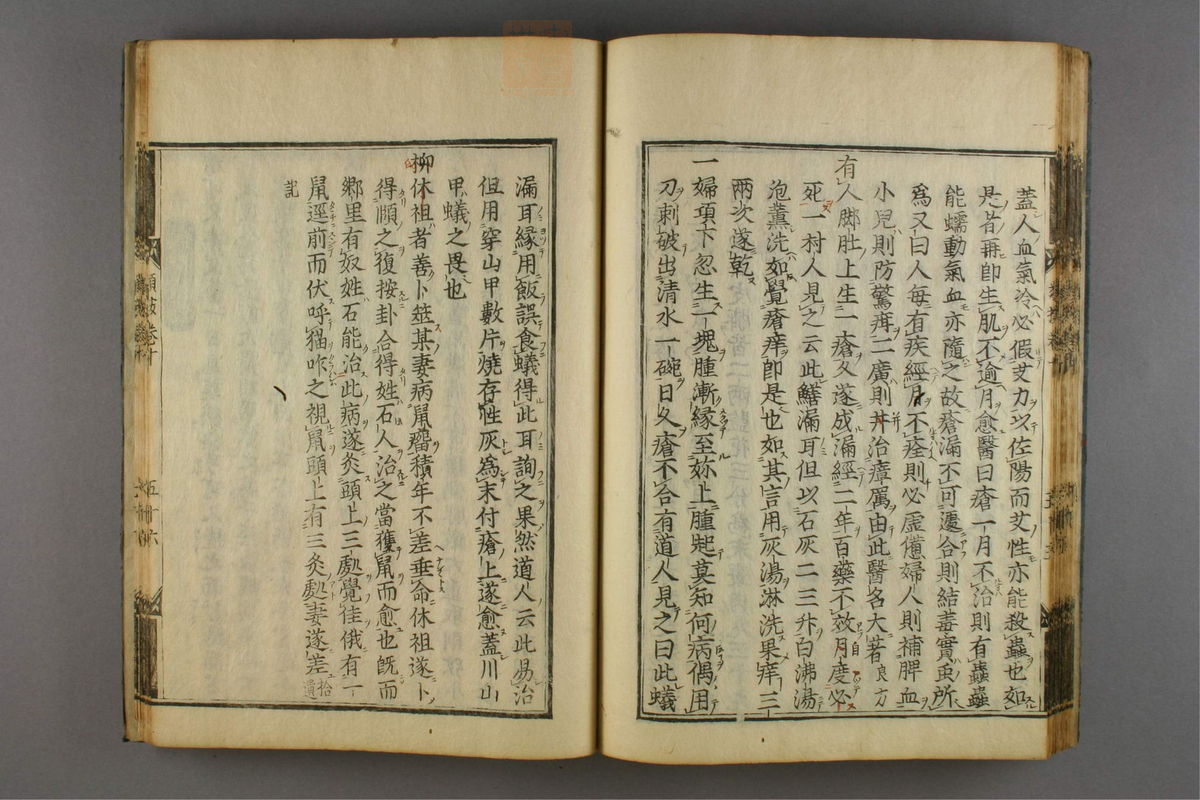 蓋人血氣冷必假艾力以佐陽而艾性亦能殺蟲也如
是者再即生肌不逾月愈醫曰瘡一月不治則有蟲蟲
能蠕動氣血亦隨之故瘡漏不可遽合則結毒實虫所
爲又曰人每有疾經月不痊則必虛憊婦人則補脾血
小兒則防驚疳二廣則并治瘴厲由此醫各大著良方
有人脚肚上生一瘡久遂成漏經二年百藥不效自度必
死一村人見之云此鱔漏耳但以石灰二三升白沸湯
泡薰洗如覺瘡痒即是也如其言用灰湯淋洗果痒三
兩次遂乾
一婦項下忽生一塊腫漸縁至妳上腫起莫知何病偶用
刀刺破出清水一碗日久瘡不合有道人見之曰此蟻
漏耳縁用飯誤食蟻得此耳詢之果然道人云此易治
但用穿山甲數片燒存性灰爲末付瘡上遂愈蓋川山
甲蟻之畏也
柳休祖者善卜筮其妻病鼠瘤積年不差垂命休祖遂卜
得頤之復按卦合得姓石人治之當獲鼠而愈也既而
郷里有奴姓石能治此病遂灸頭上三處覺佳俄有一
鼠逕前而伏呼猫咋之視鼠頭上有三灸處妻遂差 拾遺
記
類 卷十
五十六